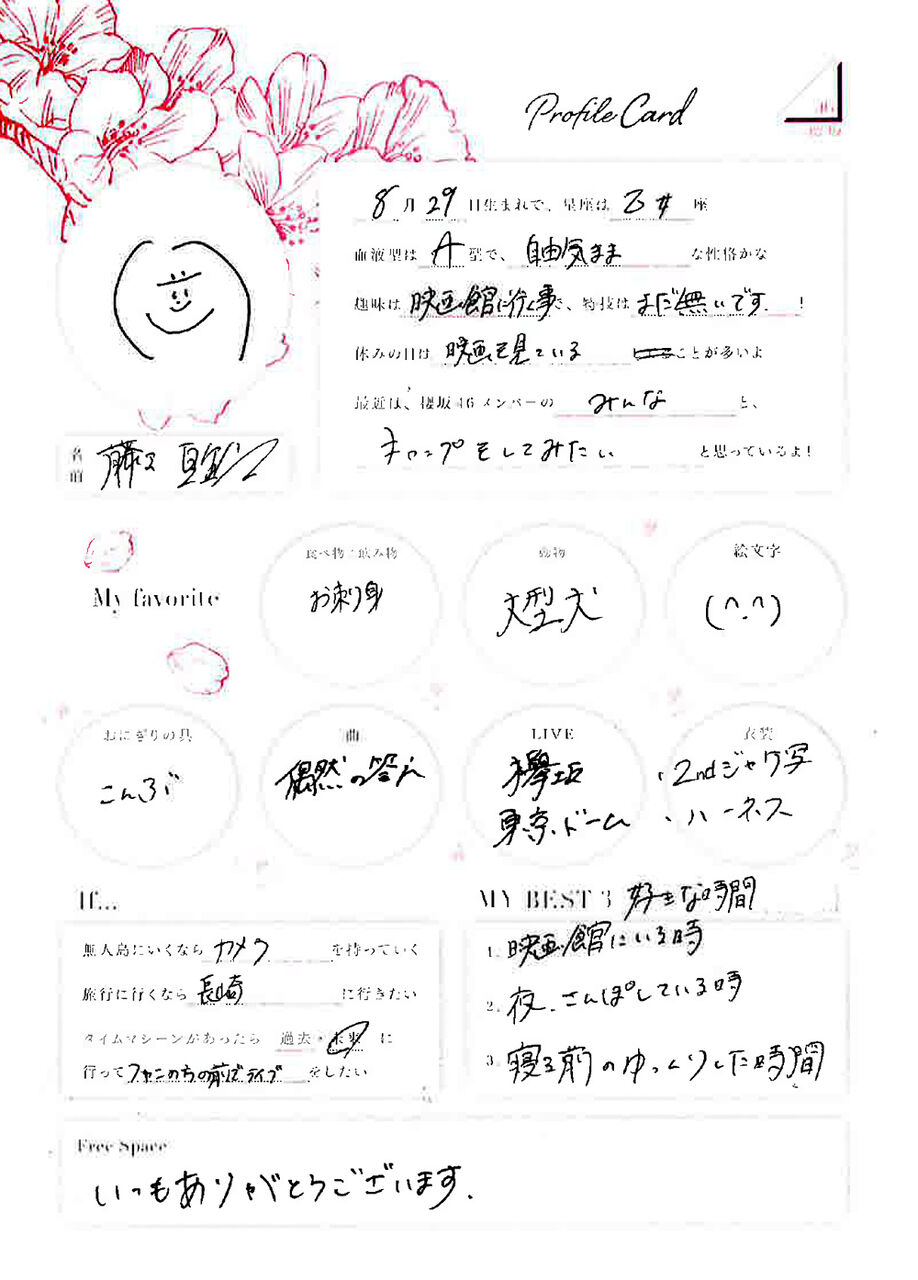 Profile Card
8月29日生まれで、星座は乙女座
血液型はA型で、自由気ままな性格かな
趣味は映画館に行く事で、特技はまだ無いです。!
休みの日は映画を見ていることが多いよ
最近は、櫻坂46メンバーのみんなと、
キャンプをしてみたいと思っているよ!
名前 藤
My favorite
食べ物・飲み物
お刺身
動物
大型犬
絵文字
(^.^)
おにぎりの具
こんぶ
曲
偶然の答え
LIVE
欅坂
東京ドーム
衣装
・2ndジャケ写
・ハーネス
If...
無人島にいくならカメラを持っていく
旅行に行くなら長崎に行きたい
タイムマシーンがあったら 過去・未来 に
行ってファンの方の前でライブをしたい
MY BEST 3 好きな時間
1. 映画館にいる時
2. 夜、さんぽしている時
3. 寝る前のゆっくりした時間
Free Space
いつもありがとうございます。